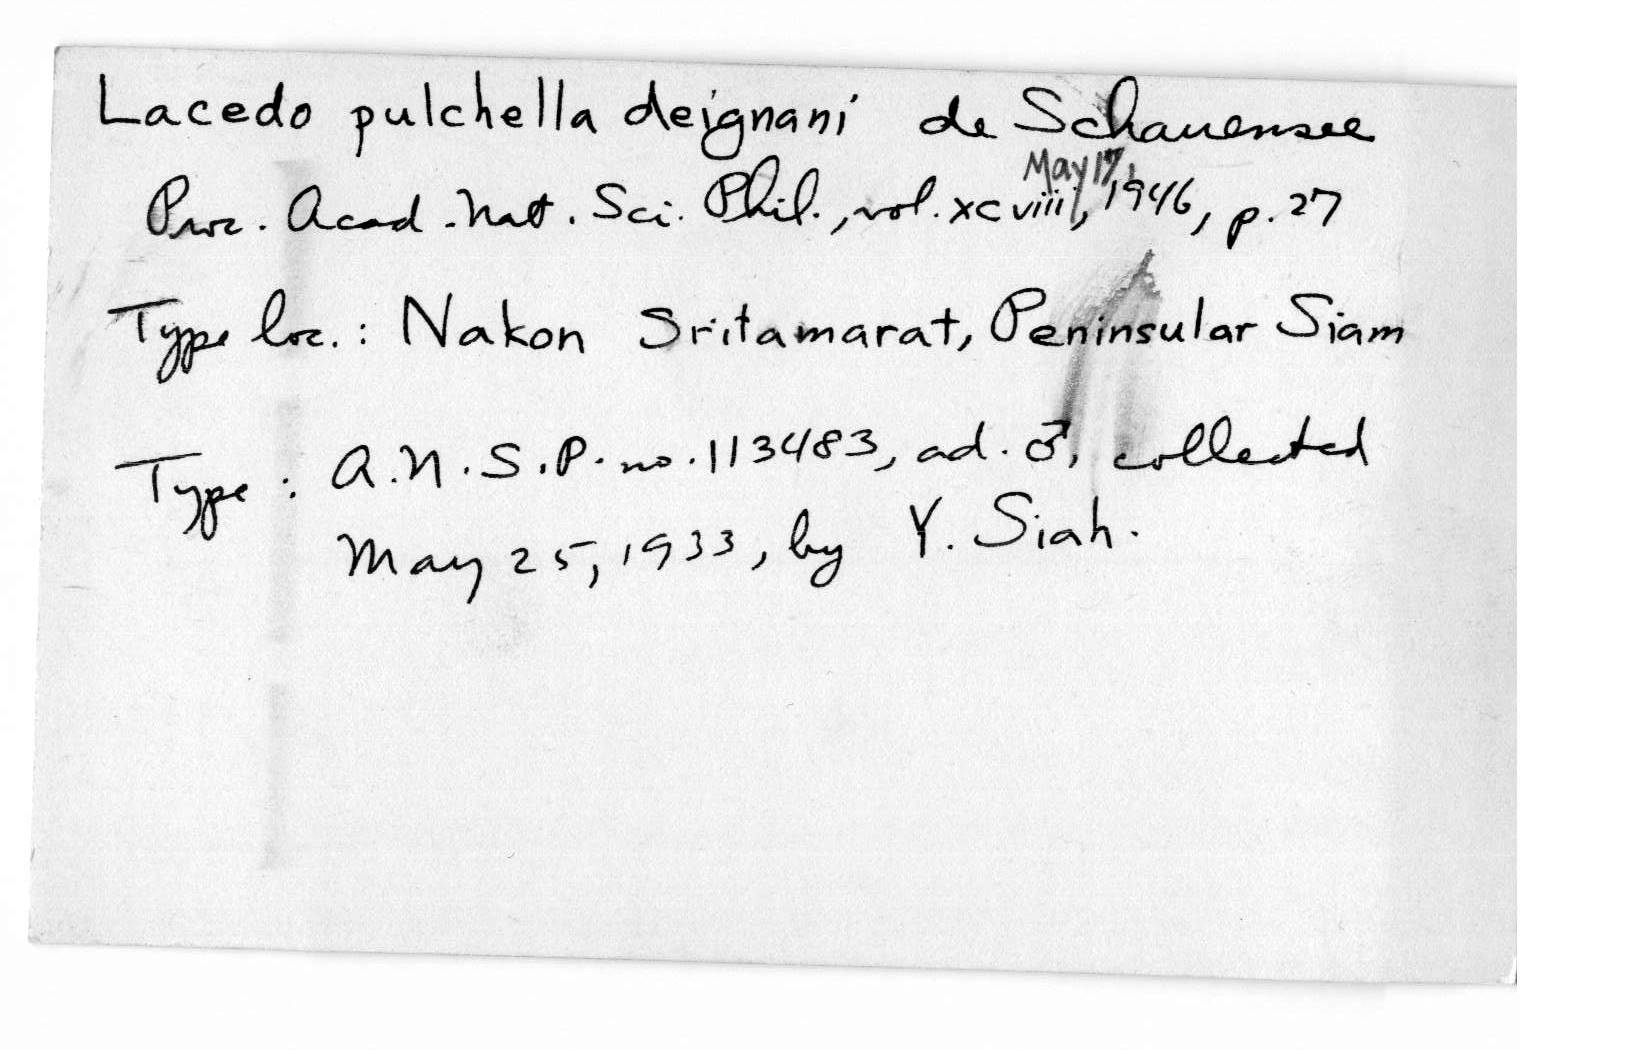 Lacedo pulchella deignani de Schauensee
Proc. Acad. Nat. Sci. Phil., vol. xcviii, May 17, 1946, p. 27
Type loc.: Nakon Sritamarat, Peninsular Siam
Type: A.N.S.P. no. 113483, ad. ♂, collected
May 25, 1933, by Y. Siah.